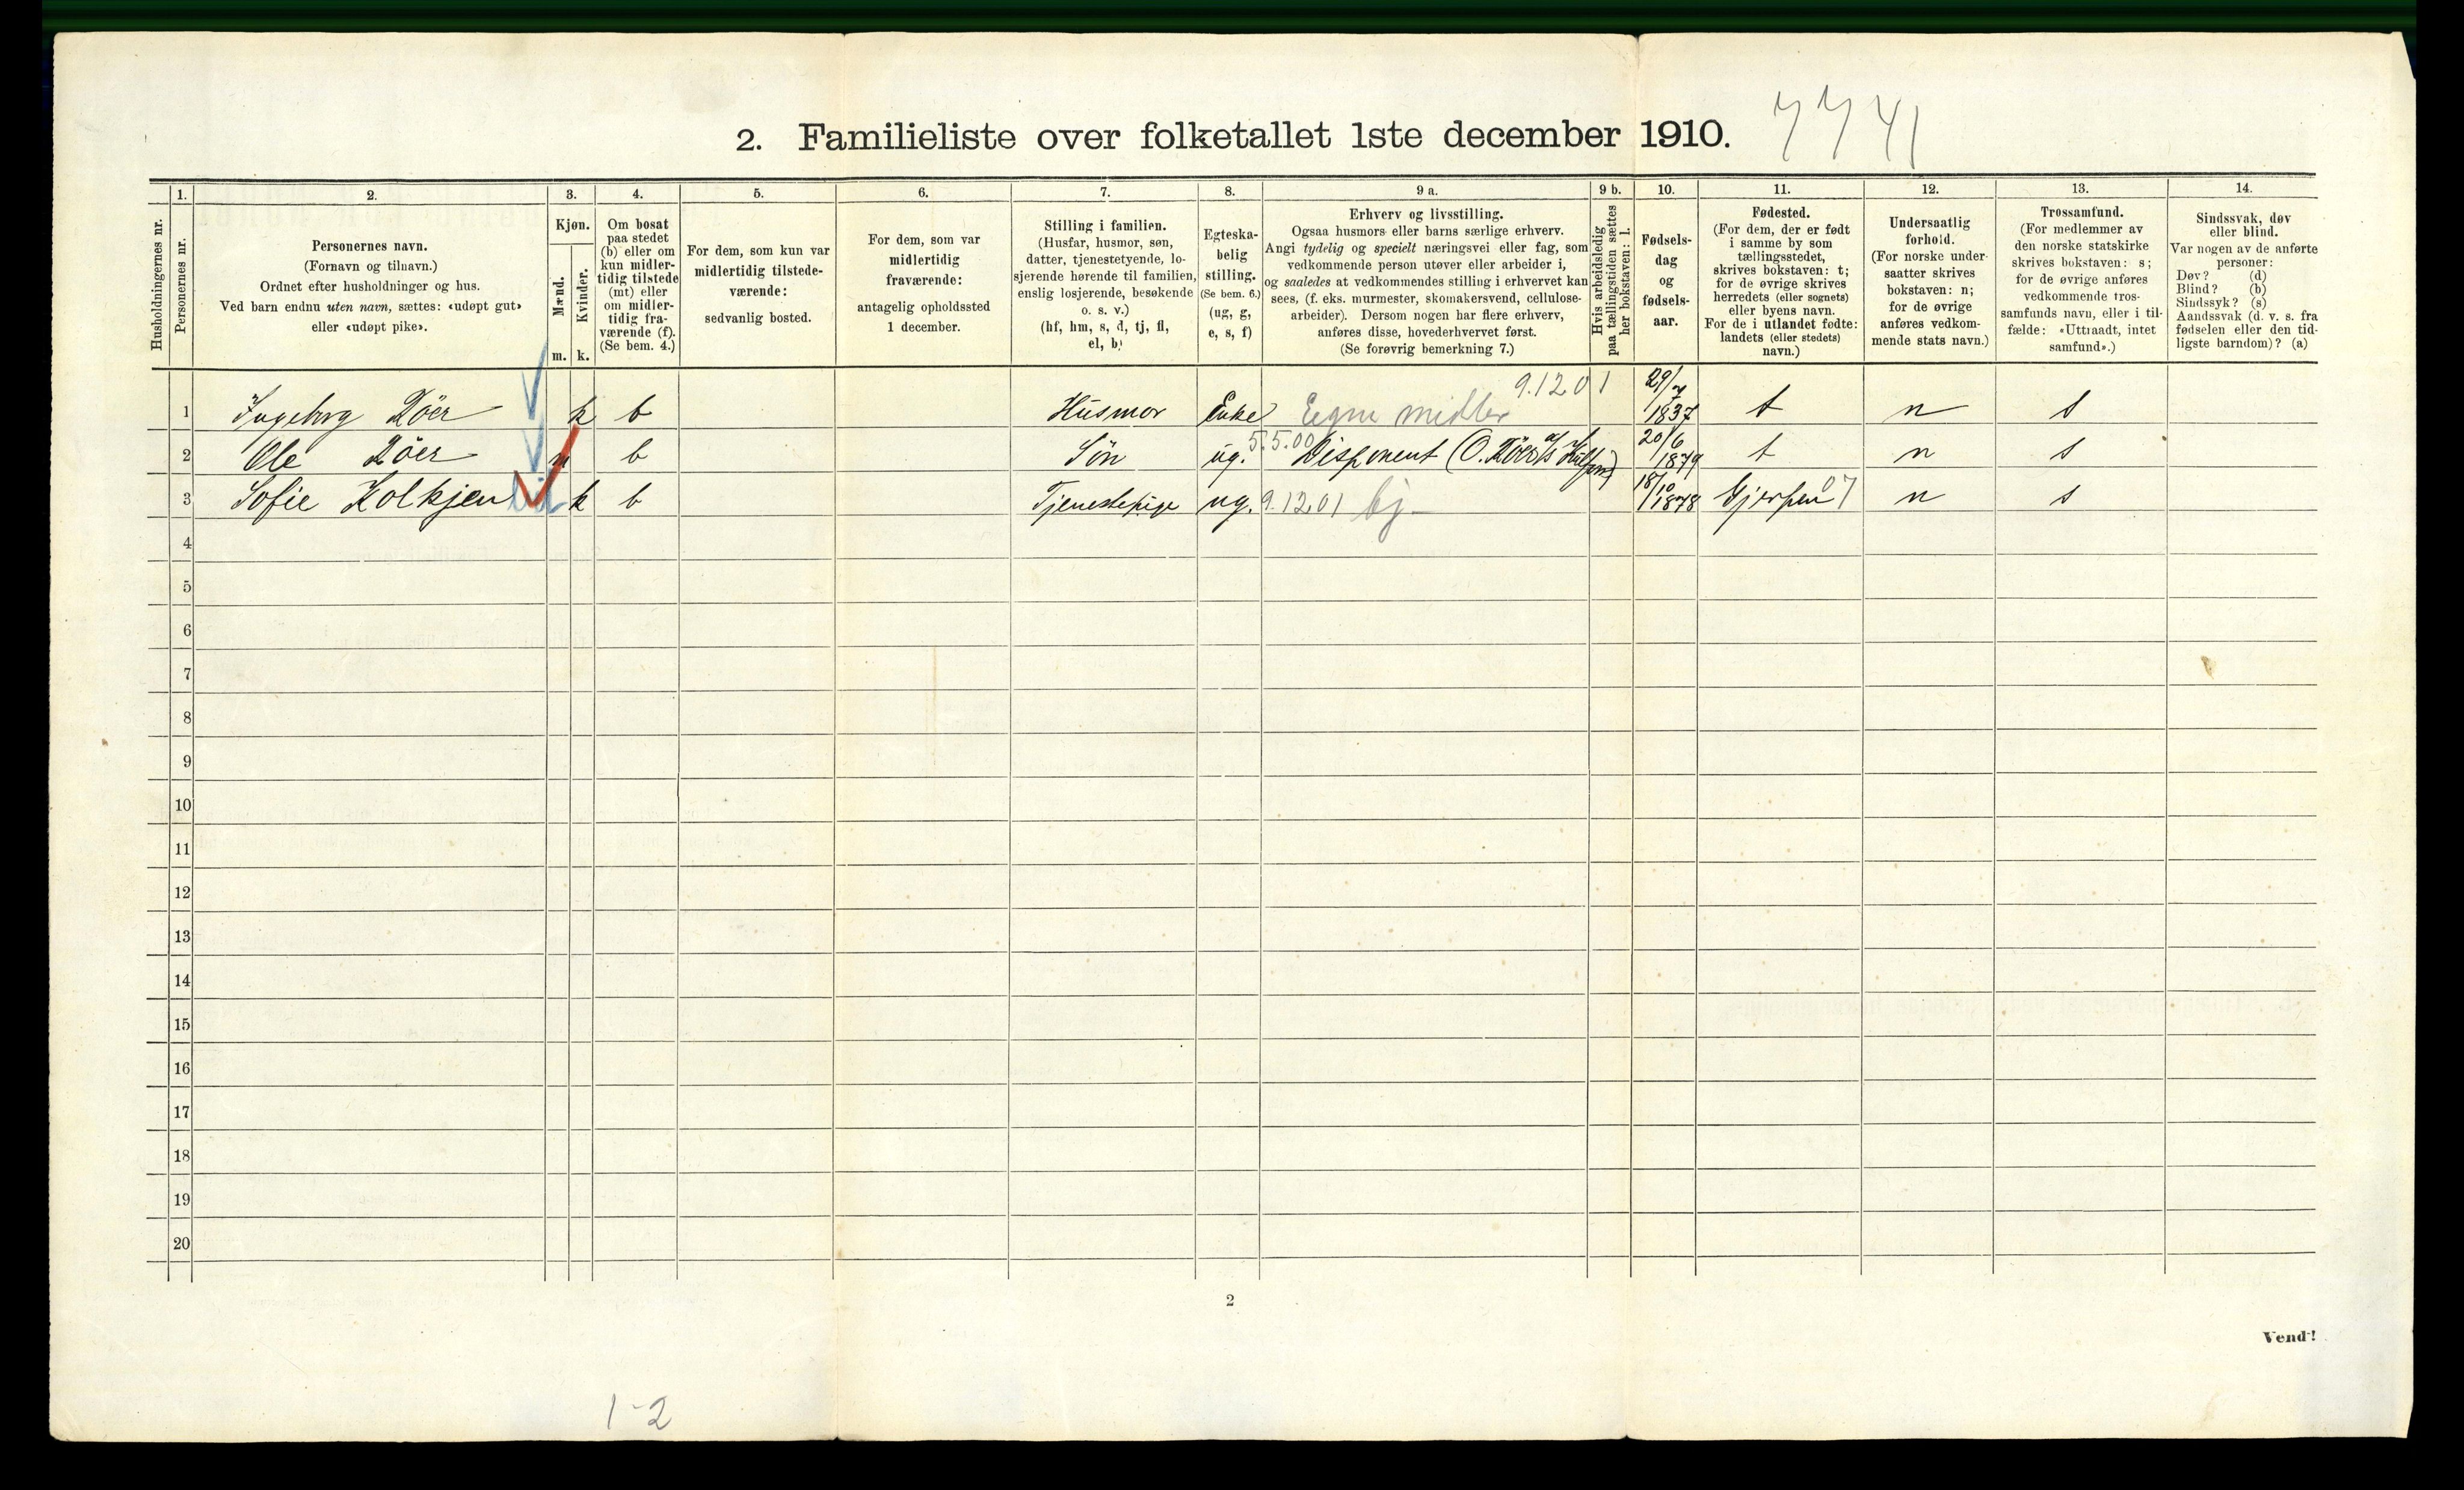 2. Familieliste over folketallet 1ste december 1910. 7741
1. 2. 3. 4. 5. 6. 7. 8. 9 a. 9 b. 10. 11. 12. 13. 14.
Husholdningernes nr.
Personernes nr.
Personernes navn.
(Fornavn og tilnavn.)
Ordnet efter husholdninger og hus.
Ved barn endnu uten navn, sættes: «udøpt gut»
eller «udøpt pike».
Kjøn.
Mænd.
Kvinder.
m. k.
Om bosat
paa stedet
(b) eller om
kun midler-
tidig tilstede
(mt) eller
om midler-
tidig fra-
værende (f).
(Se bem. 4.)
For dem, som kun var
midlertidig tilstede-
værende:
sedvanlig bosted.
For dem, som var
midlertidig
fraværende:
antagelig opholdssted
1 december.
Stilling i familien.
(Husfar, husmor, søn,
datter, tjenestetyende, lo-
sjerende hørende til familien,
enslig losjerende, besøkende
o. s. v.)
(hf, hm, s, d, tj, fl,
el, b)
Egteska-
belig
stilling.
(Se bem. 6.)
(ug, g,
e, s, f)
Erhverv og livsstilling.
Ogsaa husmors eller barns særlige erhverv.
Angi tydelig og specielt næringsvei eller fag, som
vedkommende person utøver eller arbeider i,
og saaledes at vedkommendes stilling i erhvervet kan
sees, (f. eks. murmester, skomakersvend, cellulose-
arbeider). Dersom nogen har flere erhverv,
anføres disse, hovederhvervet først.
(Se forøvrig bemerkning 7.)
Hvis arbeidsledig
paa tællingstiden sættes
her bokstaven: l.
Fødsels-
dag
og
fødsels-
aar.
Fødested.
(For dem, der er født
i samme by som
tællingsstedet,
skrives bokstaven: t;
for de øvrige skrives
herredets (eller sognets)
eller byens navn.
For de i utlandet fødte:
landets (eller stedets)
navn.)
Undersaatlig
forhold.
(For norske under-
saatter skrives
bokstaven: n;
for de øvrige
anføres vedkom-
mende stats navn.)
Trossamfund.
(For medlemmer av
den norske statskirke
skrives bokstaven: s;
for de øvrige anføres
vedkommende tros-
samfunds navn, eller i til-
fælde: «Uttraadt, intet
samfund».)
Sindssvak, døv
eller blind.
Var nogen av de anførte
personer:
Døv? (d)
Blind? (b)
Sindssyk? (s)
Aandssvak (d. v. s. fra
fødselen eller den tid-
ligste barndom)? (a)
1 Ingeborg Röer k b Husmor Enke Egne midler 9.1201 29/7 1837 t n s
2 Ole Röer m b Sön ug. 5.5.00 Disponent (O. Röers 20/6 1879 t n s
3 Sofie Kolkjen k b Tjenestepige ug. 9.1201 bj- 18/10 1878 Gjerpen 07 n s
4
5
6
7
8
9
10
11
12
13
14
15
16
17
18
19
20
2
Vend!
1-2